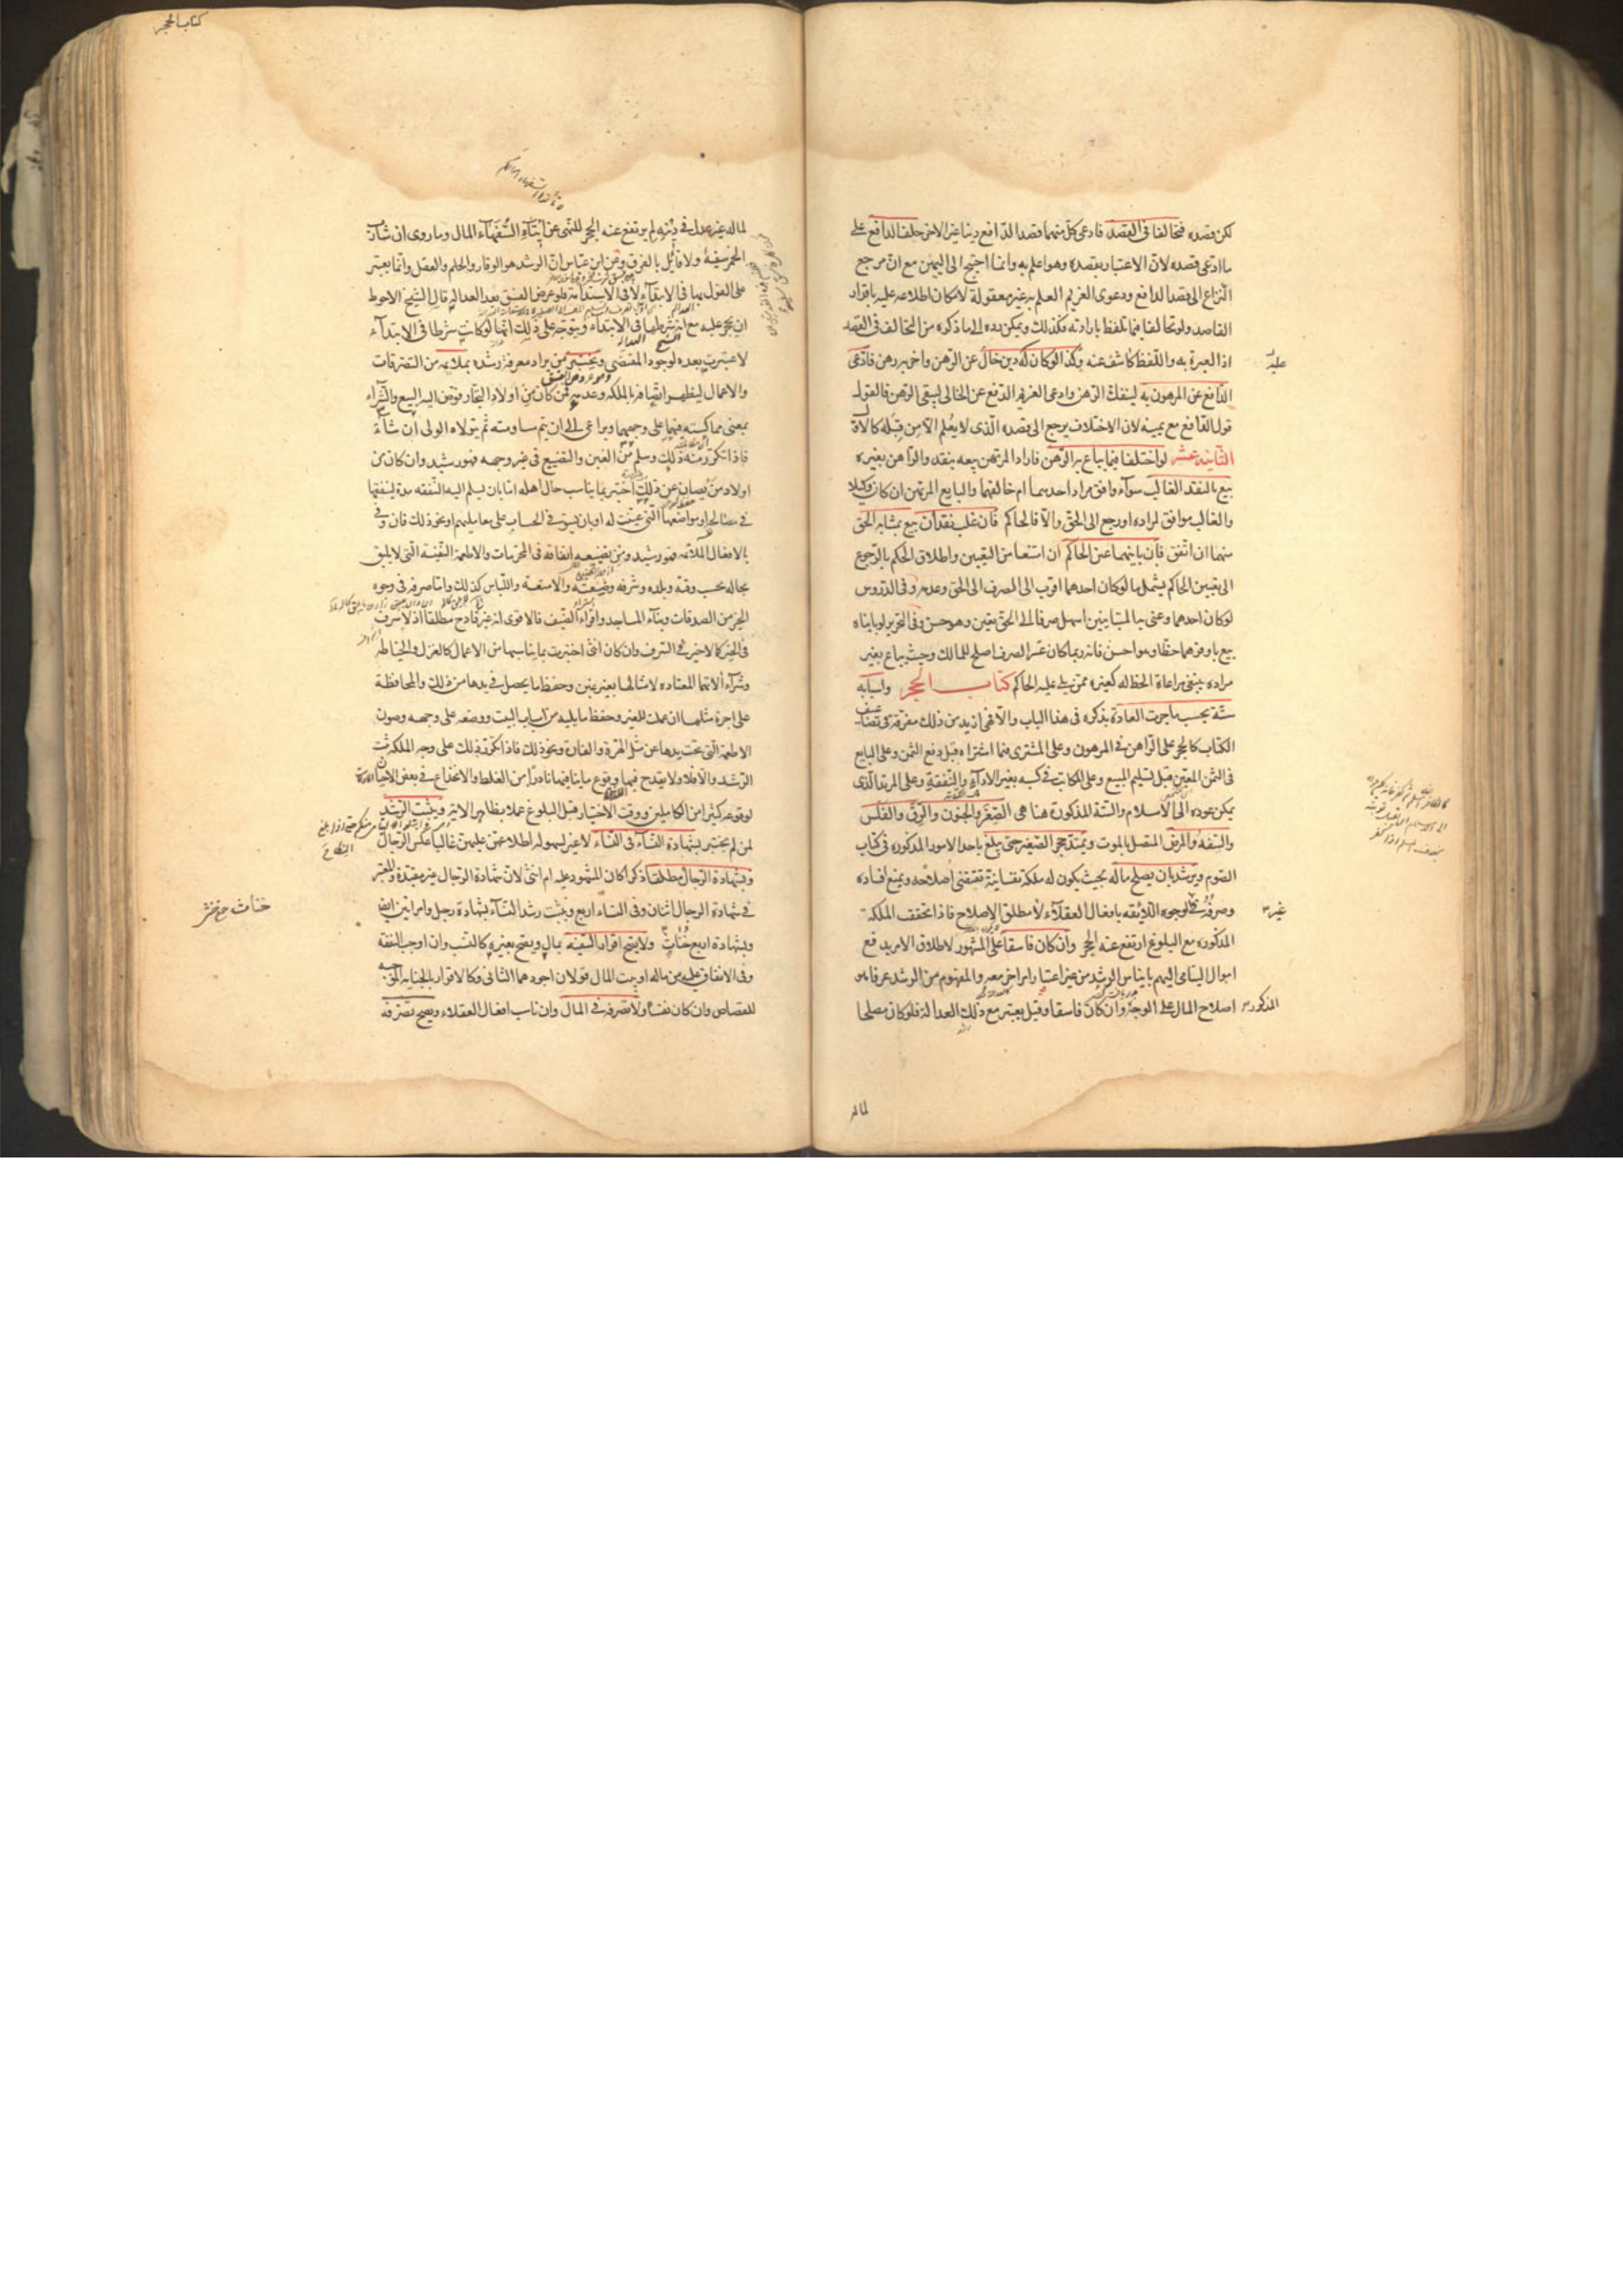 لكن قصده فتخالفا في القصد فادعى كل منهما قصد الدافع دينا غير الاخر حلف الدافع على
ما ادعى قصده لان الاعتبار بقصده وهو اعلم به وانما احتيج الى اليمين مع ان مرجع
النزاع الى قصد الدافع ودعوى الغريم العلم به غير معقولة لامكان اطلاعه عليه باقرار
القاصد ولو تخالفا فيما تلفظ بارادته فكذلك ويمكن رده الى ما ذكره من التخالف في القصد
اذ العبرة به واللفظ كاشف عنه وكذا لو كان له دين خال عن الرهن واخر به رهن فادعى
الدافع عن المرهون به ليفتك الرهن وادعى الغريم الدفع عن الخالي ليبقى الرهن فالقول
قول الدافع مع يمينه لان الاختلاف يرجع الى قصده الذي لا يعلم الا من قبله كالاول
الثانية عشر لو اختلفا فيما يباع به الرهن فاراد المرتهن بيعه بنقد والراهن بغيره
بيع بالنقد الغالب سوآء وافق مراد احدهما ام خالفهما والبايع المرتهن ان كان وكيلا
والغالب موافق لمراده او رجع الى الحق والا فالحاكم فان غلب نقدان بيع بمشابه الحق
منهما ان اتفق فان باينهما عين الحاكم ان امتنعا من التعيين واطلاق الحكم بالرجوع
الى تعيين الحاكم يشمل ما لو كان احدهما اقرب الى الصرف الى الحق وعدمه وفي الدروس
لو كان احدهما وعنى به المتباينين اسهل صرفا الى الحق تعين وهو حسن وفي التحرير لو بايناه
بيع باوفرهما حظا وهو احسن فانه ربما كان عسر الصرف اصلح للمالك وحيث يباع بغير
مراده ينبغي مراعاة الحظ له كغيره ممن يلي عليه الحاكم كتاب الحجر واسبابه
ستة بحسب ما جرت العادة بذكره في هذا الباب والا فهي ازيد من ذلك مفرقة في تضاعيف
الكتاب كالحجر على الراهن في المرهون وعلى المشتري فيما اشتراه قبل دفع الثمن وعلى البايع
في الثمن المعين قبل تسليم المبيع وعلى المكاتب في كسبه بغير الاداء والنفقة وعلى المرتد الذي
يمكن عوده الى الاسلام والستة المذكورة هنا هي الصغر والجنون والرق والفلس
والسفه والمرض المتصل بالموت ويمتد حجر الصغير حتى يبلغ باحد الامور المذكورة في كتاب
الصوم ويرشد بان يصلح ماله بحيث يكون له ملكة نفسانية تقتضي اصلاحه ويمنع افساده
وصرفه في غير الوجوه اللائقة بافعال العقلاء لا مطلق الاصلاح فاذا تحققت الملكة
المذكورة مع البلوغ ارتفع عنه الحجر وان كان فاسقا على المشهور لاطلاق الامر بدفع
اموال اليتامى اليهم بايناس الرشد من غير اعتبار امر اخر معه والمفهوم من الرشد عرفا هو
اصلاح المال على الوجه المذكور وان كان فاسقا وقيل يعتبر مع ذلك العدالة فلو كان مصلحا
لماله
كتاب الحجر
لماله غير عدل في دينه لم يرتفع عنه الحجر للنهي عن ايتاء السفهاء المال وما روى ان شارب
الخمر سفيه ولا قائل بالفرق وعن ابن عباس ان الرشد هو الوقار والحلم والعقل وانما يعتبر
على القول بها في الابتداء لا في الاستدامة فلو عرض الفسق بعد العدالة قال الشيخ الاحوط
ان يحجر عليه مع انه شرطها في الابتداء ويتوجه على ذلك انها لو كانت شرطا في الابتداء
لاعتبرت بعده لوجود المقتضي ويختبر من يراد معرفة رشده بملايمه من التصرفات
والاعمال ليظهر اتصافه بالملكة وعدمه فمن كان من اولاد التجار فوض اليه البيع والشراء
بمعنى مماكسته فيهما على وجههما ويراعى الى ان يتم مساومته ثم يتولاه الولي ان شاء
فاذا تكرر منه ذلك وسلم من الغبن والتضييع في غير وجهه فهو رشيد وان كان من
اولاد من يصان عن ذلك اختبر بما يناسب حال اهله اما بان يسلم اليه النفقة مدة لينفقها
في مصالحه او مواضعها التي عينت له او بان يستوفي الحساب على معامليهم او نحو ذلك فان وفى
بالافعال الملائمة فهو رشيد ومن تضييعه انفاقه في المحرمات والاطعمة النفيسة التي لا يليق
بحاله بحسب وقته وبلده وشرفه وضعته والامتعة واللباس كذلك واما صرفه في وجوه
الخير من الصدقات وبناء المساجد واقراء الضيف فالاقوى انه غير قادح مطلقا اذ لا سرف
في الخير كما لا خير في السرف وان كان انثى اختبرت بما يناسبها من الاعمال كالغزل والخياطة
وشراء آلاتهما المعتادة لامثالها بغير غبن وحفظ ما يحصل في يدها من ذلك والمحافظة
على اجرة مثلها ان عملت للغير وحفظ ما يليه من اسباب البيت ووضعه على وجهه وصون
الاطعمة التي تحت يدها عن مثل الهرة والفارة ونحو ذلك فاذا تكرر ذلك على وجه الملكة ثبت
الرشد والا فلا ولا يقدح فيها وقوع ما ينافيها نادرا من الغلط والانخداع في بعض الاحيان
لوقوعه كثيرا من الكاملين ووقت الاختبار قبل البلوغ عملا بظاهر الاية ويثبت الرشد
لمن لم يختبر بشهادة النساء في النساء لا غير لسهولة اطلاعهن عليهن غالبا عكس الرجال
وبشهادة الرجال مطلقا ذكرا كان المشهود عليه ام انثى لان شهادة الرجال غير مقيدة والمعتبر
في شهادة الرجال اثنان وفي النساء اربع ويثبت رشد النساء بشهادة رجل وامراتين ايضا
وبشهادة اربع خناث ولا يصح اقرار السفيه بمال ويصح بغيره كالنسب وان اوجب النفقة
وفي الانفاق عليه من ماله او بيت المال قولان اجودهما الثاني وكالاقرار بالجناية الموجبة
للقصاص وان كان نفسا ولا تصرفه في المال وان ناسب افعال العقلاء ويصح تصرفه
خناث جمع خنثى